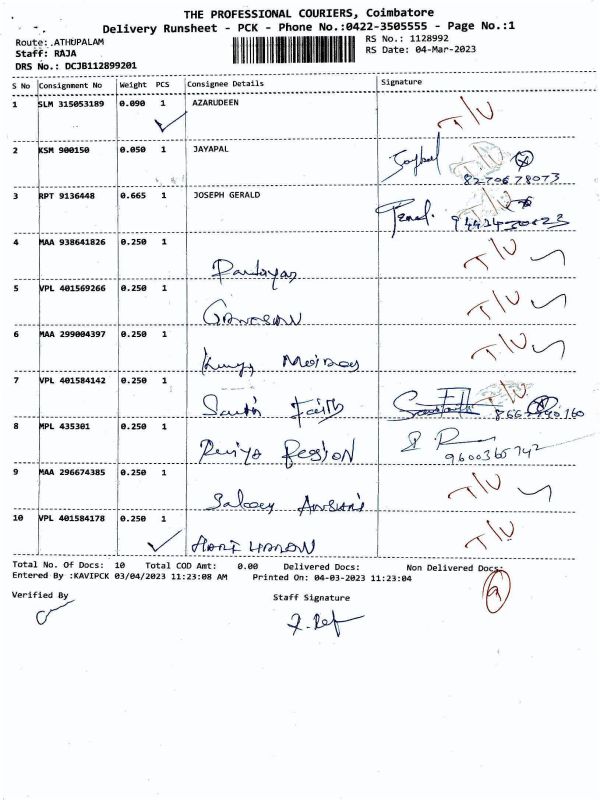 THE PROFESSIONAL COURIERS, Coimbatore
Delivery Runsheet - PCK - Phone No.:0422-3505555 - Page No.:1
Route: .ATHUPALAM
RS No.: 1128992
Staff: RAJA
RS Date: 04-Mar-2023
DRS No.: DCJB112899201
S No Consignment No Weight PCS Consignee Details Signature
1 SLM 315053189 0.090 1 AZARUDEEN T/U
2 KSM 900150 0.050 1 JAYAPAL
8270678073
3 RPT 9136448 0.665 1 JOSEPH GERALD
4 MAA 938641826 0.250 1 T/U
5 VPL 401569266 0.250 1 T/U
GANESAN
6 MAA 299004397 0.250 1 T/U
7 VPL 401584142 0.250 1 T/U
8 MPL 435301 0.250 1
9600365742
9 MAA 296674385 0.250 1 T/U
10 VPL 401584178 0.250 1 T/U
Total No. Of Docs: 10 Total COD Amt: 0.00 Delivered Docs: Non Delivered Docs:
Entered By :KAVIPCK 03/04/2023 11:23:08 AM Printed On: 04-03-2023 11:23:04
Verified By Staff Signature